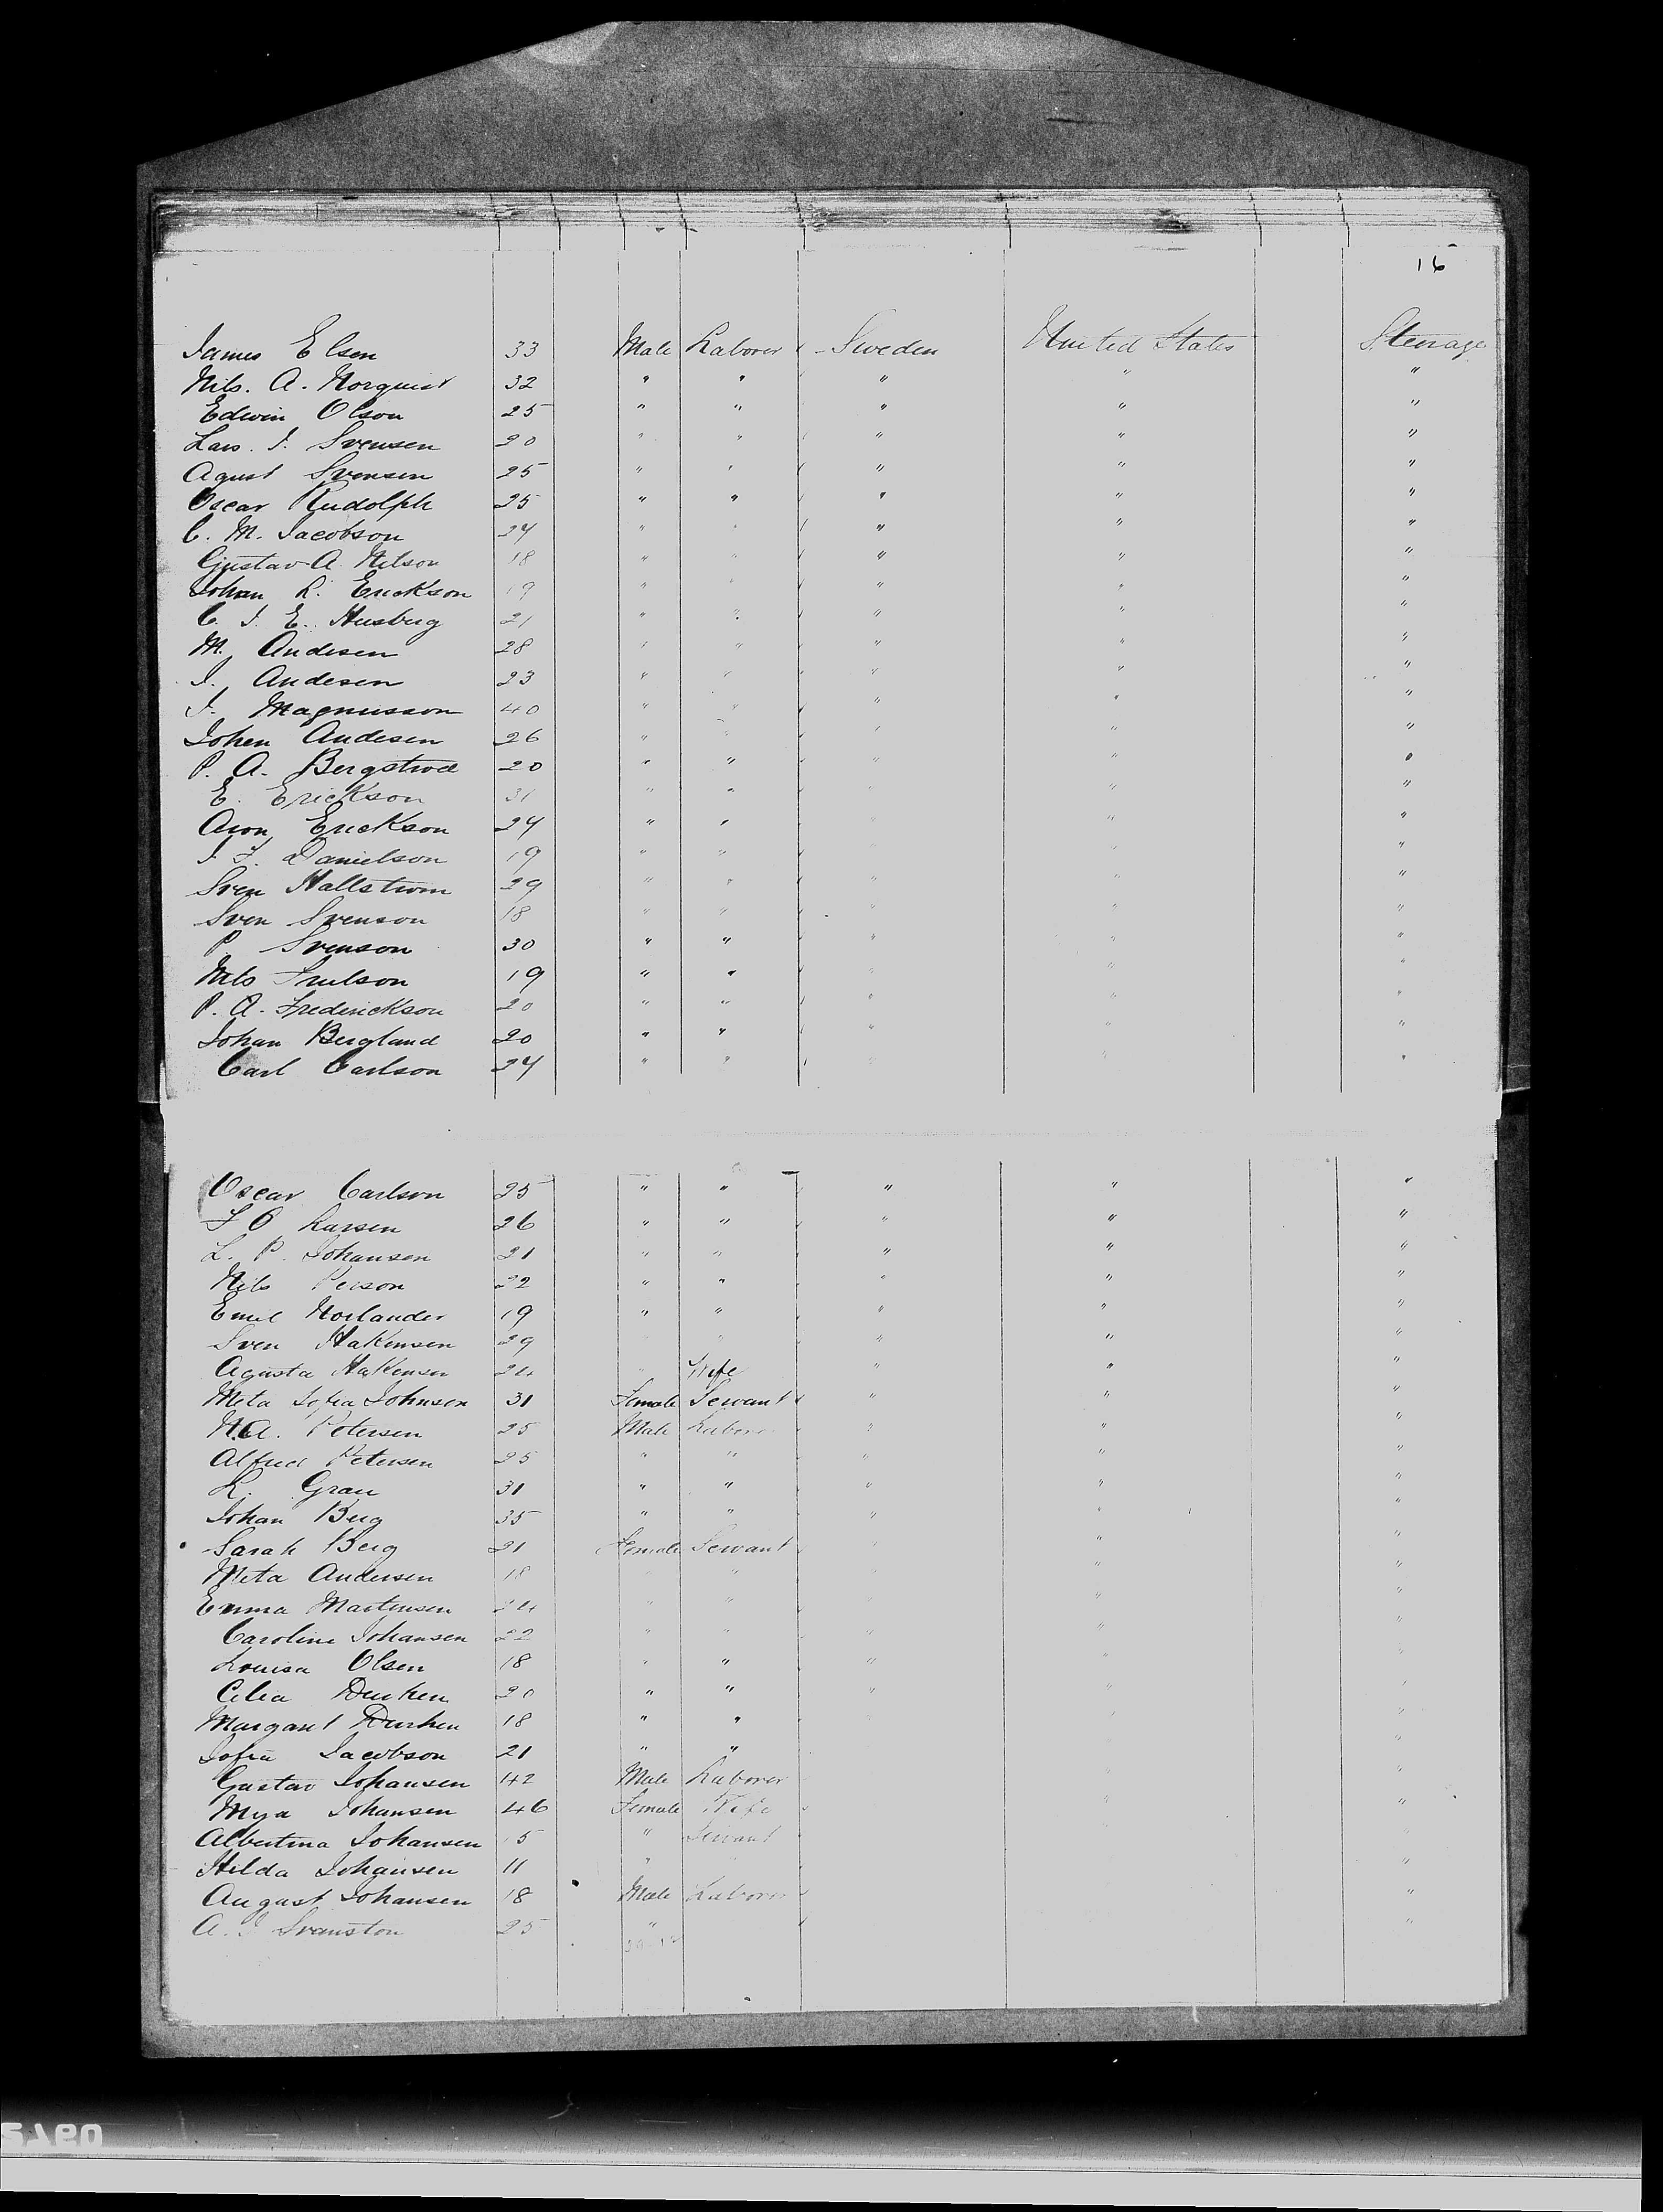 16
James Elsen 33 Male Laborer Sweden United States Steerage
Nils. A. Norquist 32 " " " " "
Edwin Olson 25 " " " " "
Lars. J. Svensen 20 " " " " "
Agust Svensen 25 " " " " "
Oscar Rudolph 25 " " " " "
C. M. Jacobson 24 " " " " "
Gustav A. Nilson 18 " " " " "
Johan L. Erickson 19 " " " " "
C. J. E. Husberg 21 " " " " "
M. Andesen 28 " " " " "
J. Andesen 23 " " " " "
J. Magnusson 40 " " " " "
Johen Andesen 26 " " " " "
P. A. 20 " " " " "
E. Erickson 31 " " " " "
Aron Erickson 24 " " " " "
J. F. Danielson 19 " " " " "
Sven Hallstrom 29 " " " " "
Sven Svenson 18 " " " " "
P. Svenson 30 " " " " "
Nils 19 " " " " "
P. A. Frederickson 20 " " " " "
Johan Bergland 20 " " " " "
Carl Carlson 24 " " " " "
Oscar Carlson 25 " " " " "
F O Larsen 26 " " " " "
L. P. Johansen 21 " " " " "
Nils Person 22 " " " " "
Emil Norlander 19 " " " " "
Sven Hakensen 29 " " " " "
Agusta Hakensen 24 " Wife " " "
Meta Sofia Johnsen 31 Female Servant " " "
N.A. Petersen 25 Male Laborer " " "
Alfred Petersen 25 " " " " "
L. Grau 31 " " " " "
Johan Berg 35 " " " " "
Sarah Berg 21 Female Servant " " "
Meta Andersen 18 " " " " "
Emma Martensen 24 " " " " "
Caroline Johansen 22 " " " " "
Louisa Olsen 18 " " " " "
Celia 20 " " " " "
Margaret 18 " " " "
Sofia Jacobson 21 " " "
Gustav Johansen 42 Male Laborer " "
Mya Johansen 46 Female Wife " "
Albertina Johansen 15 " Servant
Hilda Johansen 11 " "
August Johansen 18 Male Laborer "
A. J. Svanston 25 " "